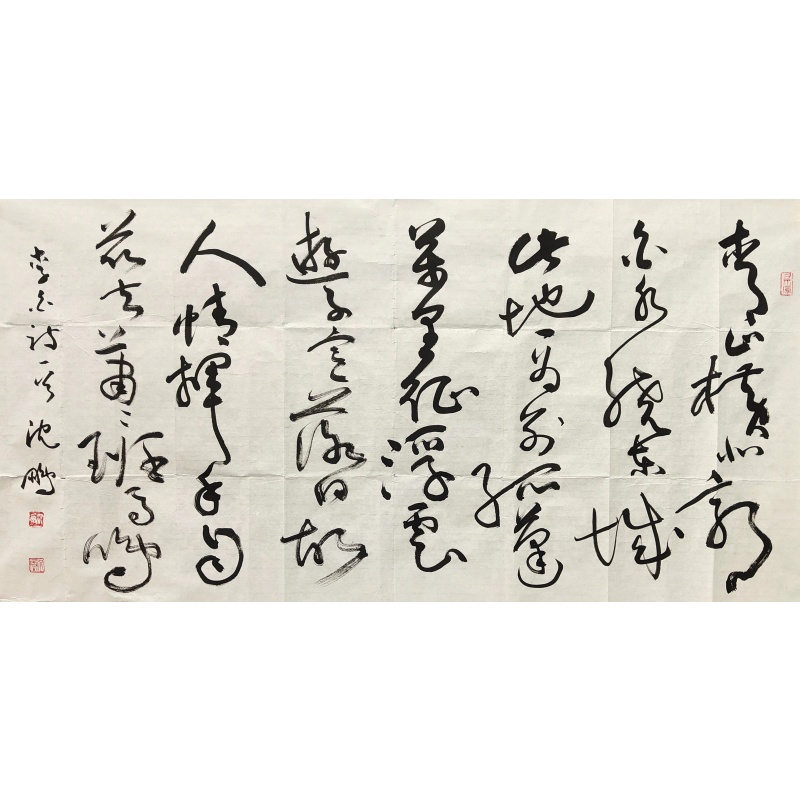 青山橫北郭
白水繞東城
此地一為別孤蓬
萬里征浮雲
遊子意落日故
人情揮手自
茲去蕭々班馬鳴
李白詩一首 沈鵬